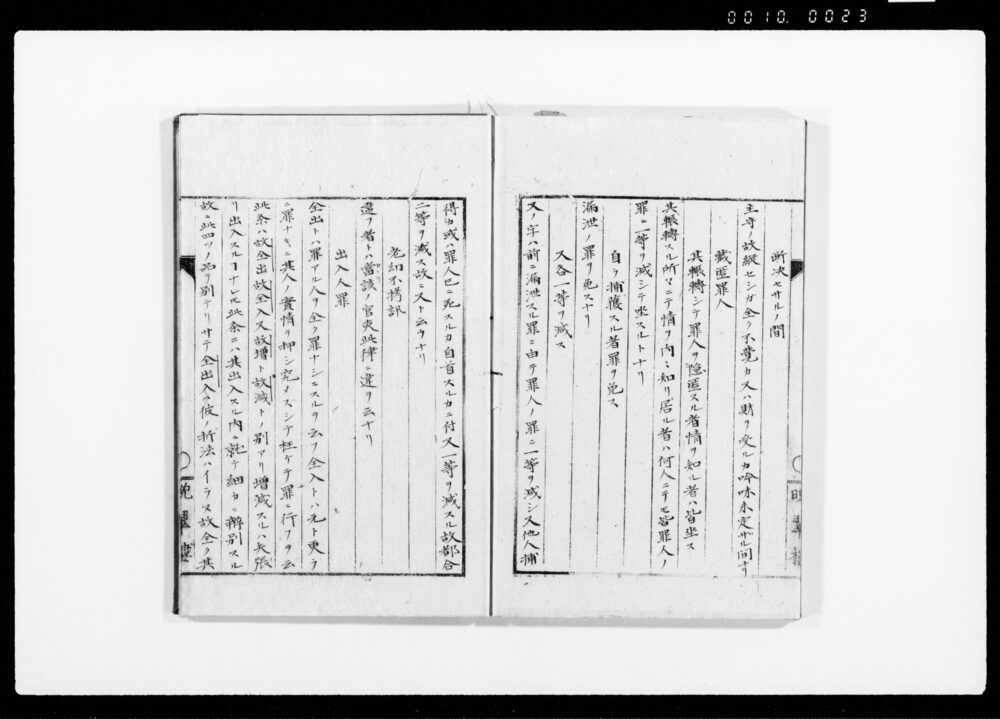 0010. 0023
断決セサルノ間
主守ノ故縦セシガ全ク不覚カ又ハ財ヲ受ルカ吟味未定ザル間ナリ
蔵匿罪人
其輾轉シテ罪人ヲ隠匿スル者情ヲ知ル者ハ皆坐ス
其輾轉スル所マニテ情ヲ内々知リ居ル者ハ何人ニテモ皆罪人ノ
罪ニ一等ヲ減シテ坐スルトナリ
自ラ捕獲スル者罪ヲ免ス
漏泄ノ罪ヲ免スナリ
又各一等ヲ減ス
又ノ字ハ前ニ漏泄スル罪ニ由テ罪人ノ罪ニ一等ヲ減シ又他人捕
得カ或ハ罪人已ニ死スルカ自首スルカニ付又一等ヲ減スル故都合
二等ヲ減ス故ニ又ト云ウナリ
老幼不拷訊
違フ者トハ當該ノ官吏此律ニ違フヲ云ナリ
出入人罪
全出トハ罪アル人ヲ全ク罪ナシニスルヲ云フ全入トハ元ト更ラ
ニ罪ナキニ其人ノ實情ヲ押シ究メズシテ枉ケテ罪ニ行フヲ云
此条ハ故全出故全入又故増ト故減トノ別アリ増減スルハ矢張
リ出入スルヿナレ𪜈此条ニハ其出入スル内ニ就テ細カニ辨別スル
故ニ此四ツノ品ヲ別テリサテ全出入ハ彼ノ折法ハイラヌ故全ク其
晩翠